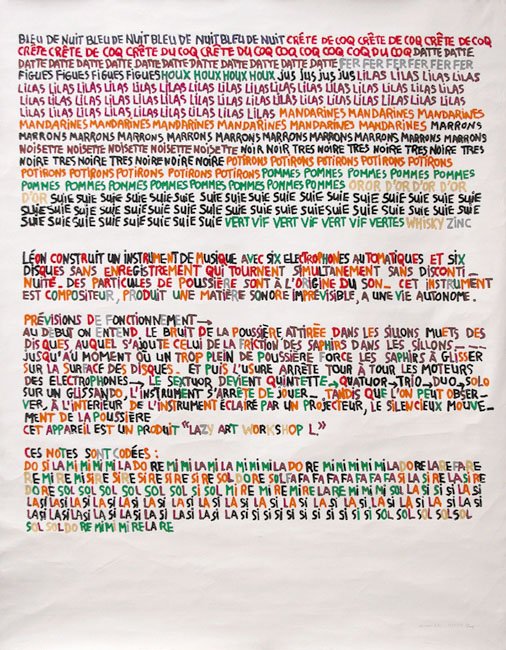 BLEU DE NUIT BLEU DE NUIT BLEU DE NUIT BLEU DE NUIT CRÊTE DE COQ CRÊTE DE COQ CRÊTE DE COQ
CRÊTE CRÊTE DE COQ CRÊTE DU COQ CRÊTE DU COQ COQ COQ COQ COQ DU COQ DATTE DATTE
DATTE DATTE DATTE DATTE DATTE DATTE DATTE DATTE DATTE DATTE DATTE FER FER FER FER FER FER
FIGUES FIGUES FIGUES FIGUES HOUX HOUX HOUX HOUX JUS JUS JUS JUS LILAS LILAS LILAS LILAS
LILAS LILAS LILAS LILAS LILAS LILAS LILAS LILAS LILAS LILAS LILAS LILAS LILAS LILAS LILAS
LILAS LILAS LILAS LILAS LILAS LILAS LILAS LILAS LILAS LILAS LILAS LILAS LILAS LILAS LILAS
LILAS LILAS LILAS LILAS LILAS LILAS LILAS LILAS MANDARINES MANDARINES MANDARINES
MANDARINES MANDARINES MANDARINES MANDARINES MANDARINES MANDARINES MARRONS
MARRONS MARRONS MARRONS MARRONS MARRONS MARRONS MARRONS MARRONS MARRONS
NOISETTE NOISETTE NOISETTE NOISETTE NOISETTE NOIR NOIR TRES NOIRE TRES NOIRE TRES
NOIRE TRES NOIRE TRES NOIRE NOIRE NOIRE POTIRONS POTIRONS POTIRONS POTIRONS POTIRONS
POTIRONS POTIRONS POTIRONS POTIRONS POTIRONS POMMES POMMES POMMES POMMES POMMES
POMMES POMMES POMMES POMMES POMMES POMMES POMMES POMMES OR OR D'OR D'OR D'OR
D'OR SUIE SUIE SUIE SUIE SUIE SUIE SUIE SUIE SUIE SUIE SUIE SUIE SUIE SUIE SUIE SUIE
SUIE SUIE SUIE SUIE SUIE SUIE SUIE SUIE SUIE SUIE SUIE SUIE SUIE SUIE SUIE SUIE SUIE
SUIE SUIE SUIE SUIE SUIE SUIE SUIE SUIE VERT VIF VERT VIF VERT VIF VERTES WHISKY ZINC
LÉON CONSTRUIT UN INSTRUMENT DE MUSIQUE AVEC SIX ELECTROPHONES AUTOMATIQUES ET SIX
DISQUES SANS ENREGISTREMENT QUI TOURNENT SIMULTANEMENT SANS DISCONTI_
NUITÉ_ DES PARTICULES DE POUSSIÈRE SONT À L'ORIGINE DU SON_ CET INSTRUMENT
EST COMPOSITEUR, PRODUIT UNE MATIÈRE SONORE IMPRÉVISIBLE, A UNE VIE AUTONOME.
PRÉVISIONS DE FONCTIONNEMENT→
AU DEBUT ON ENTEND, LE BRUIT DE LA POUSSIÈRE ATTIRÉE DANS LES SILLONS MUETS DES
DISQUES AUQUEL S'AJOUTE CELUI DE LA FRICTION DES SAPHIRS DANS LES SILLONS_ _ _ _
JUSQU'AU MOMENT OÙ UN TROP PLEIN DE POUSSIÈRE FORCE LES SAPHIRS À GLISSER
SUR LA SURFACE DES DISQUES_ ET PUIS L'USURE ARRÊTE TOUR À TOUR LES MOTEURS
DES ELECTROPHONES→ LE SEXTUOR DEVIENT QUINTETTE→QUATUOR→TRIO→DUO→SOLO
SUR UN GLISSANDO, L'INSTRUMENT S'ARRÊTE DE JOUER_ TANDIS QUE L'ON PEUT OBSER_
VER, À L'INTERIEUR DE L'INSTRUMENT ÉCLAIRÉ PAR UN PROJECTEUR, LE SILENCIEUX MOUVE_
MENT DE LA POUSSIÈRE
CET APPAREIL EST UN PRODUIT "LAZY ART WORKSHOP L."
CES NOTES SONT CODÉES :
DO SI LA MI MI MI MI LA DO RE MI MI LA MI LA MI MI MI LA DO RE MI MI MI MI MI LA DO RE LA RE FA RE
RE MI RE MI SI RE SI RE SI RE SI RE SI RE SOL DO RE SOL FA FA FA FA FA FA FA FA SI LA SI RE LA SI RE
DO RE SOL SOL SOL SOL SOL SOL SI SOL MI RE MI RE MI RE LA RE MI MI MI SOL LA SI SI LA SI
LA SI LA SI LA SI LA SI LA SI LA SI LA SI LA SI LA SI LA SI LA SI LA SI LA SI LA SI LA SI LA SI
LA SI LA SI LA SI LA SI LA SI LA SI LA SI SI SI SI SI SI SI SI SI SI SOL SOL SOL SOL SOL
SOL SOL SOL DO RE MI MI MI RE LA RE